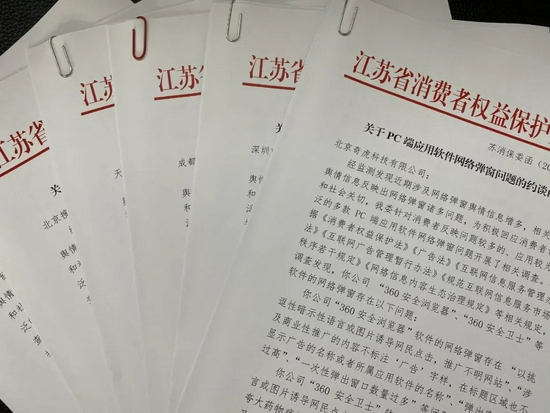 江苏省
江苏
江苏
江苏省
江苏省消费者权益保护
苏消保委函（20
关于 PC 端应用软件网络弹窗问题的约谈
北京奇虎科技有限公司：
经监测发现近期涉及网络弹窗舆情信息增多，相关
舆情信息反映出网络弹窗诸多问题，为积极回应消费者
和社会关切，我委针对消费者反映问题较多的、应用较
泛的多款 PC 端应用软件网络弹窗问题开展了相关调查。
据《消费者权益保护法》《广告法》《互联网信息服务管理
法》《互联网广告管理暂行办法》《规范互联网信息服务市场
秩序若干规定》《网络信息内容生态治理规定》等相关规定，
调查发现，你公司“360 安全浏览器”、“360 安全卫士”等
软件的网络弹窗存在以下问题：
你公司“360 安全浏览器”软件的网络弹窗存在“以挑
逗性暗示性语言或图片诱导网民点击，推广不明网站”、“涉
及商业性推广的内容不标注‘广告’字样，在标题区域也不
显示广告的名称或者所属应用软件的名称”、“弹出
过高”、“一次性弹出窗口数量过多”等
你公司“360 安全卫士”软
言或图片诱导网民点
夸大药物疗
北京
天
成都
深圳
关
舆情
和社
泛